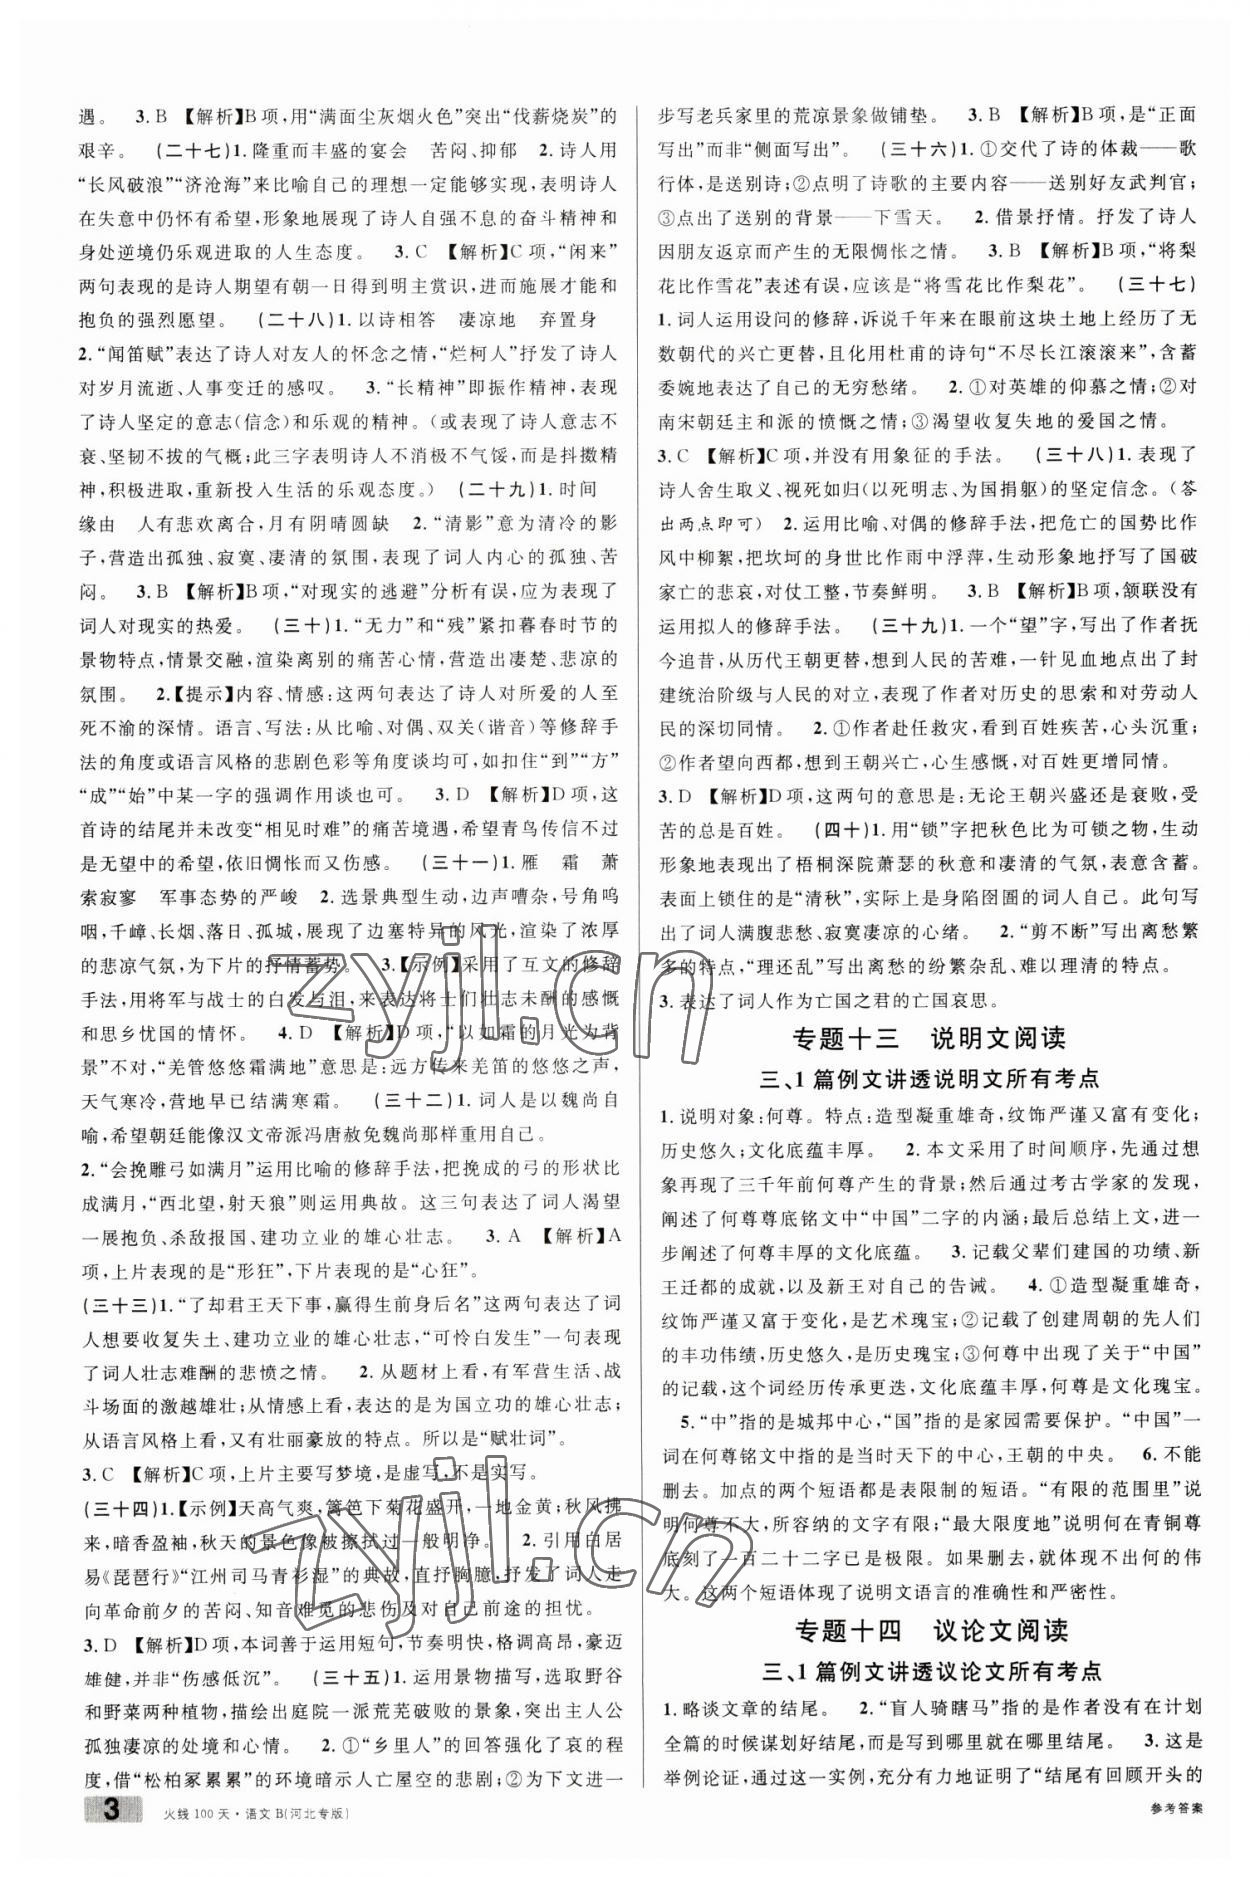 遇。　3. B　【解析】B项,用“满面尘灰烟火色”突出“伐薪烧炭”的
艰辛。　(二十七)1. 隆重而丰盛的宴会　苦闷、抑郁　2. 诗人用
“长风破浪”“济沧海”来比喻自己的理想一定能够实现,表明诗人
在失意中仍怀有希望,形象地展现了诗人自强不息的奋斗精神和
身处逆境仍乐观进取的人生态度。　3. C　【解析】C项,“闲来”
两句表现的是诗人期望有朝一日得到明主赏识,进而施展才能和
抱负的强烈愿望。　(二十八)1. 以诗相答　凄凉地　弃置身
2. “闻笛赋”表达了诗人对友人的怀念之情,“烂柯人”抒发了诗人
对岁月流逝、人事变迁的感叹。　3. “长精神”即振作精神,表现
了诗人坚定的意志(信念)和乐观的精神。(或表现了诗人意志不
衰、坚韧不拔的气概;此三字表明诗人不消极不气馁,而是抖擞精
神,积极进取,重新投入生活的乐观态度。)　(二十九)1. 时间
缘由　人有悲欢离合,月有阴晴圆缺　2. “清影”意为清冷的影
子,营造出孤独、寂寞、凄清的氛围,表现了词人内心的孤独、苦
闷。　3. B　【解析】B项,“对现实的逃避”分析有误,应为表现了
词人对现实的热爱。　(三十)1. “无力”和“残”紧扣暮春时节的
景物特点,情景交融,渲染离别的痛苦心情,营造出凄楚、悲凉的
氛围。　2. 【提示】内容、情感:这两句表达了诗人对所爱的人至
死不渝的深情。语言、写法:从比喻、对偶、双关(谐音)等修辞手
法的角度或语言风格的悲剧色彩等角度谈均可。例如扣住“到”“方”
“成”“始”中某一字的强调作用谈也可。　3. D　【解析】D项,这
首诗的结尾并未改变“相见时难”的痛苦境遇,希望青鸟传信不过
是无望中的希望,依旧惆怅而又伤感。　(三十一)1. 雁　霜　萧
索寂寥　军事态势的严峻　2. 选景典型生动,边声嘈杂,号角呜
咽,千嶂、长烟、落日、孤城,展现了边塞特异的风光,渲染了浓厚
的悲凉气氛,为下片的抒情蓄势。　3. 【示例】采用了互文的修辞
手法,将将军与战士的白发与泪,来表达将士们壮志未酬的感慨
和思乡忧国的情怀。　4. D　【解析】D项,“以如霜的月光为背
景”不对,“羌管悠悠霜满地”的意思是:远方传来羌笛的悠悠之声,
天气寒冷,营地早已结满寒霜。　(三十二)1. 词人是以魏尚自
喻,希望朝廷能像汉文帝派冯唐赦免魏尚那样重用自己。
2. “会挽雕弓如满月”运用比喻的修辞手法,把挽成的弓的形状比
成满月,“西北望,射天狼”则运用典故。这三句表达了词人渴望
一展抱负、杀敌报国、建功立业的雄心壮志。　3. A　【解析】A
项,上片表现的是“形狂”,下片表现的是“心狂”。
(三十三)1. “了却君王天下事,赢得生前身后名”这两句表达了词
人想要收复失土、建功立业的雄心壮志,“可怜白发生”一句表现
了词人壮志难酬的悲愤之情。　2. 从题材上看,有军营生活、战
斗场面的激越雄壮;从情感上看,表达的是为国立功的雄心壮志;
从语言风格上看,又有壮丽豪放的特点。所以是“赋壮词”。
3. C　【解析】C项,上片主要写梦境,是虚写,不是实写。
(三十四)1. 【示例】天高气爽,篱笆下菊花盛开,一地金黄;秋风拂
来,暗香盈袖,秋天的景色像被擦拭过一般明净。　2. 引用白居
易《琵琶行》“江州司马青衫湿”的典故,直抒胸臆,抒发了词人走
向革命前夕的苦闷、知音难觅的悲伤及对自己前途的担忧。
3. D　【解析】D项,本词善于运用短句,节奏明快,格调高昂,豪迈
雄健,并非“伤感低沉”。　(三十五)1. 运用景物描写,选取野谷
和野菜两种植物,描绘出庭院一派荒芜破败的景象,表现出主人公
孤独凄凉的处境和心情。　2. ①“乡里人”的回答强化了哀的程
度,借“松柏冢累累”的环境暗示人亡屋空的悲剧;②为下文进一
步写老兵家里的荒凉景象做铺垫。　3. B　【解析】B项,是“正面
写出”而非“侧面写出”。　(三十六)1. ①交代了诗的体裁——歌
行体,是送别诗;②点明了诗歌的主要内容——送别好友武判官;
③点出了送别的背景——下雪天。　2. 借景抒情。抒发了诗人
因朋友返京而产生的无限惆怅之情。　3. B　【解析】B项,“将梨
花比作雪花”表述有误,应该是“将雪花比作梨花”。　(三十七)
1. 词人运用设问的修辞,诉说千年来在眼前这块土地上经历了无
数朝代的兴亡更替,且化用杜甫的诗句“不尽长江滚滚来”,含蓄
委婉地表达了自己的无穷愁绪。　2. ①对英雄的仰慕之情;②对
南宋朝廷主和派的愤慨之情;③渴望收复失地的爱国之情。
3. C　【解析】C项,并没有用象征的手法。　(三十八)1. 表现了
诗人舍生取义、视死如归(以死明志、为国捐躯)的坚定信念。(答
出两点即可)　2. 运用比喻、对偶的修辞手法,把危亡的国势比作
风中柳絮,把坎坷的身世比作雨中浮萍,生动形象地抒写了国破
家亡的悲哀,对仗工整,节奏鲜明。　3. B　【解析】B项,颔联没有
运用拟人的修辞手法。　(三十九)1. 一个“望”字,写出了作者抚
今追昔,从历代王朝更替,想到人民的苦难,一针见血地点出了封
建统治阶级与人民的对立,表现了作者对历史的思索和对劳动人
民的深切同情。　2. ①作者赴任救灾,看到百姓疾苦,心头沉重;
②作者望向西都,想到王朝兴衰,心生感慨,对百姓更增同情。
3. D　【解析】D项,这两句的意思是:无论王朝兴盛还是衰败,受
苦的总是百姓。　(四十)1. 用“锁”字把秋色比为可锁之物,生动
形象地表现出了梧桐深院萧瑟的秋意和凄清的气氛,表意含蓄。
表面上锁住的是“清秋”,实际上是身陷囹圄的词人自己。此句写
出了词人满腹悲愁、寂寞凄凉的心绪。　2. “剪不断”写出离愁繁
多的特点,“理还乱”写出离愁的纷繁杂乱、难以理清的特点。
3. 表达了词人作为亡国之君的亡国哀思。
专题十三　说明文阅读
三、1篇例文讲透说明文所有考点
1. 说明对象:何尊。特点:造型凝重雄奇,纹饰严谨又富有变化;
历史悠久;文化底蕴丰厚。　2. 本文采用了时间顺序,先通过想
象再现了三千年前何尊产生的背景;然后通过考古学家的发现,
阐述了何尊尊底铭文中“中国”二字的内涵;最后总结上文,进一
步阐述了何尊丰厚的文化底蕴。　3. 记载父辈们建国的功绩、新
王迁都的成就,以及新王对自己的告诫。　4. ①造型凝重雄奇,
纹饰严谨又富有变化,是艺术瑰宝;②记载了创建周朝的先人们
的丰功伟绩,历史悠久,是历史瑰宝;③何尊中出现了关于“中国”
的记载,这个词经历传承更迭,文化底蕴丰厚,是文化瑰宝。
5. “中”指的是城邦中心,“国”指的是家园需要保护。“中国”一
词在何尊铭文中指的是当时天下的中心,王朝的中央。　6. 不能
删去。加点的两个短语都是表限制的短语。“有限的范围里”说
明何尊不大,所容纳的文字有限;“最大限度地”说明何在青铜尊
底刻了一百二十二字已是极限。如果删去,就体现不出何的伟
大。这两个短语体现了说明文语言的准确性和严密性。
专题十四　议论文阅读
三、1篇例文讲透议论文所有考点
1. 略谈文章的结尾。　2. “盲人骑瞎马”指的是作者没有在计划
全篇的时候谋划好结尾,而是写到哪里就在哪里结尾。　3. 这是
举例论证,通过这一实例,充分有力地证明了“结尾有回顾开头的
3　火线100天·语文B(河北专版)
参考答案
zyjl.cn
zyjl.cn